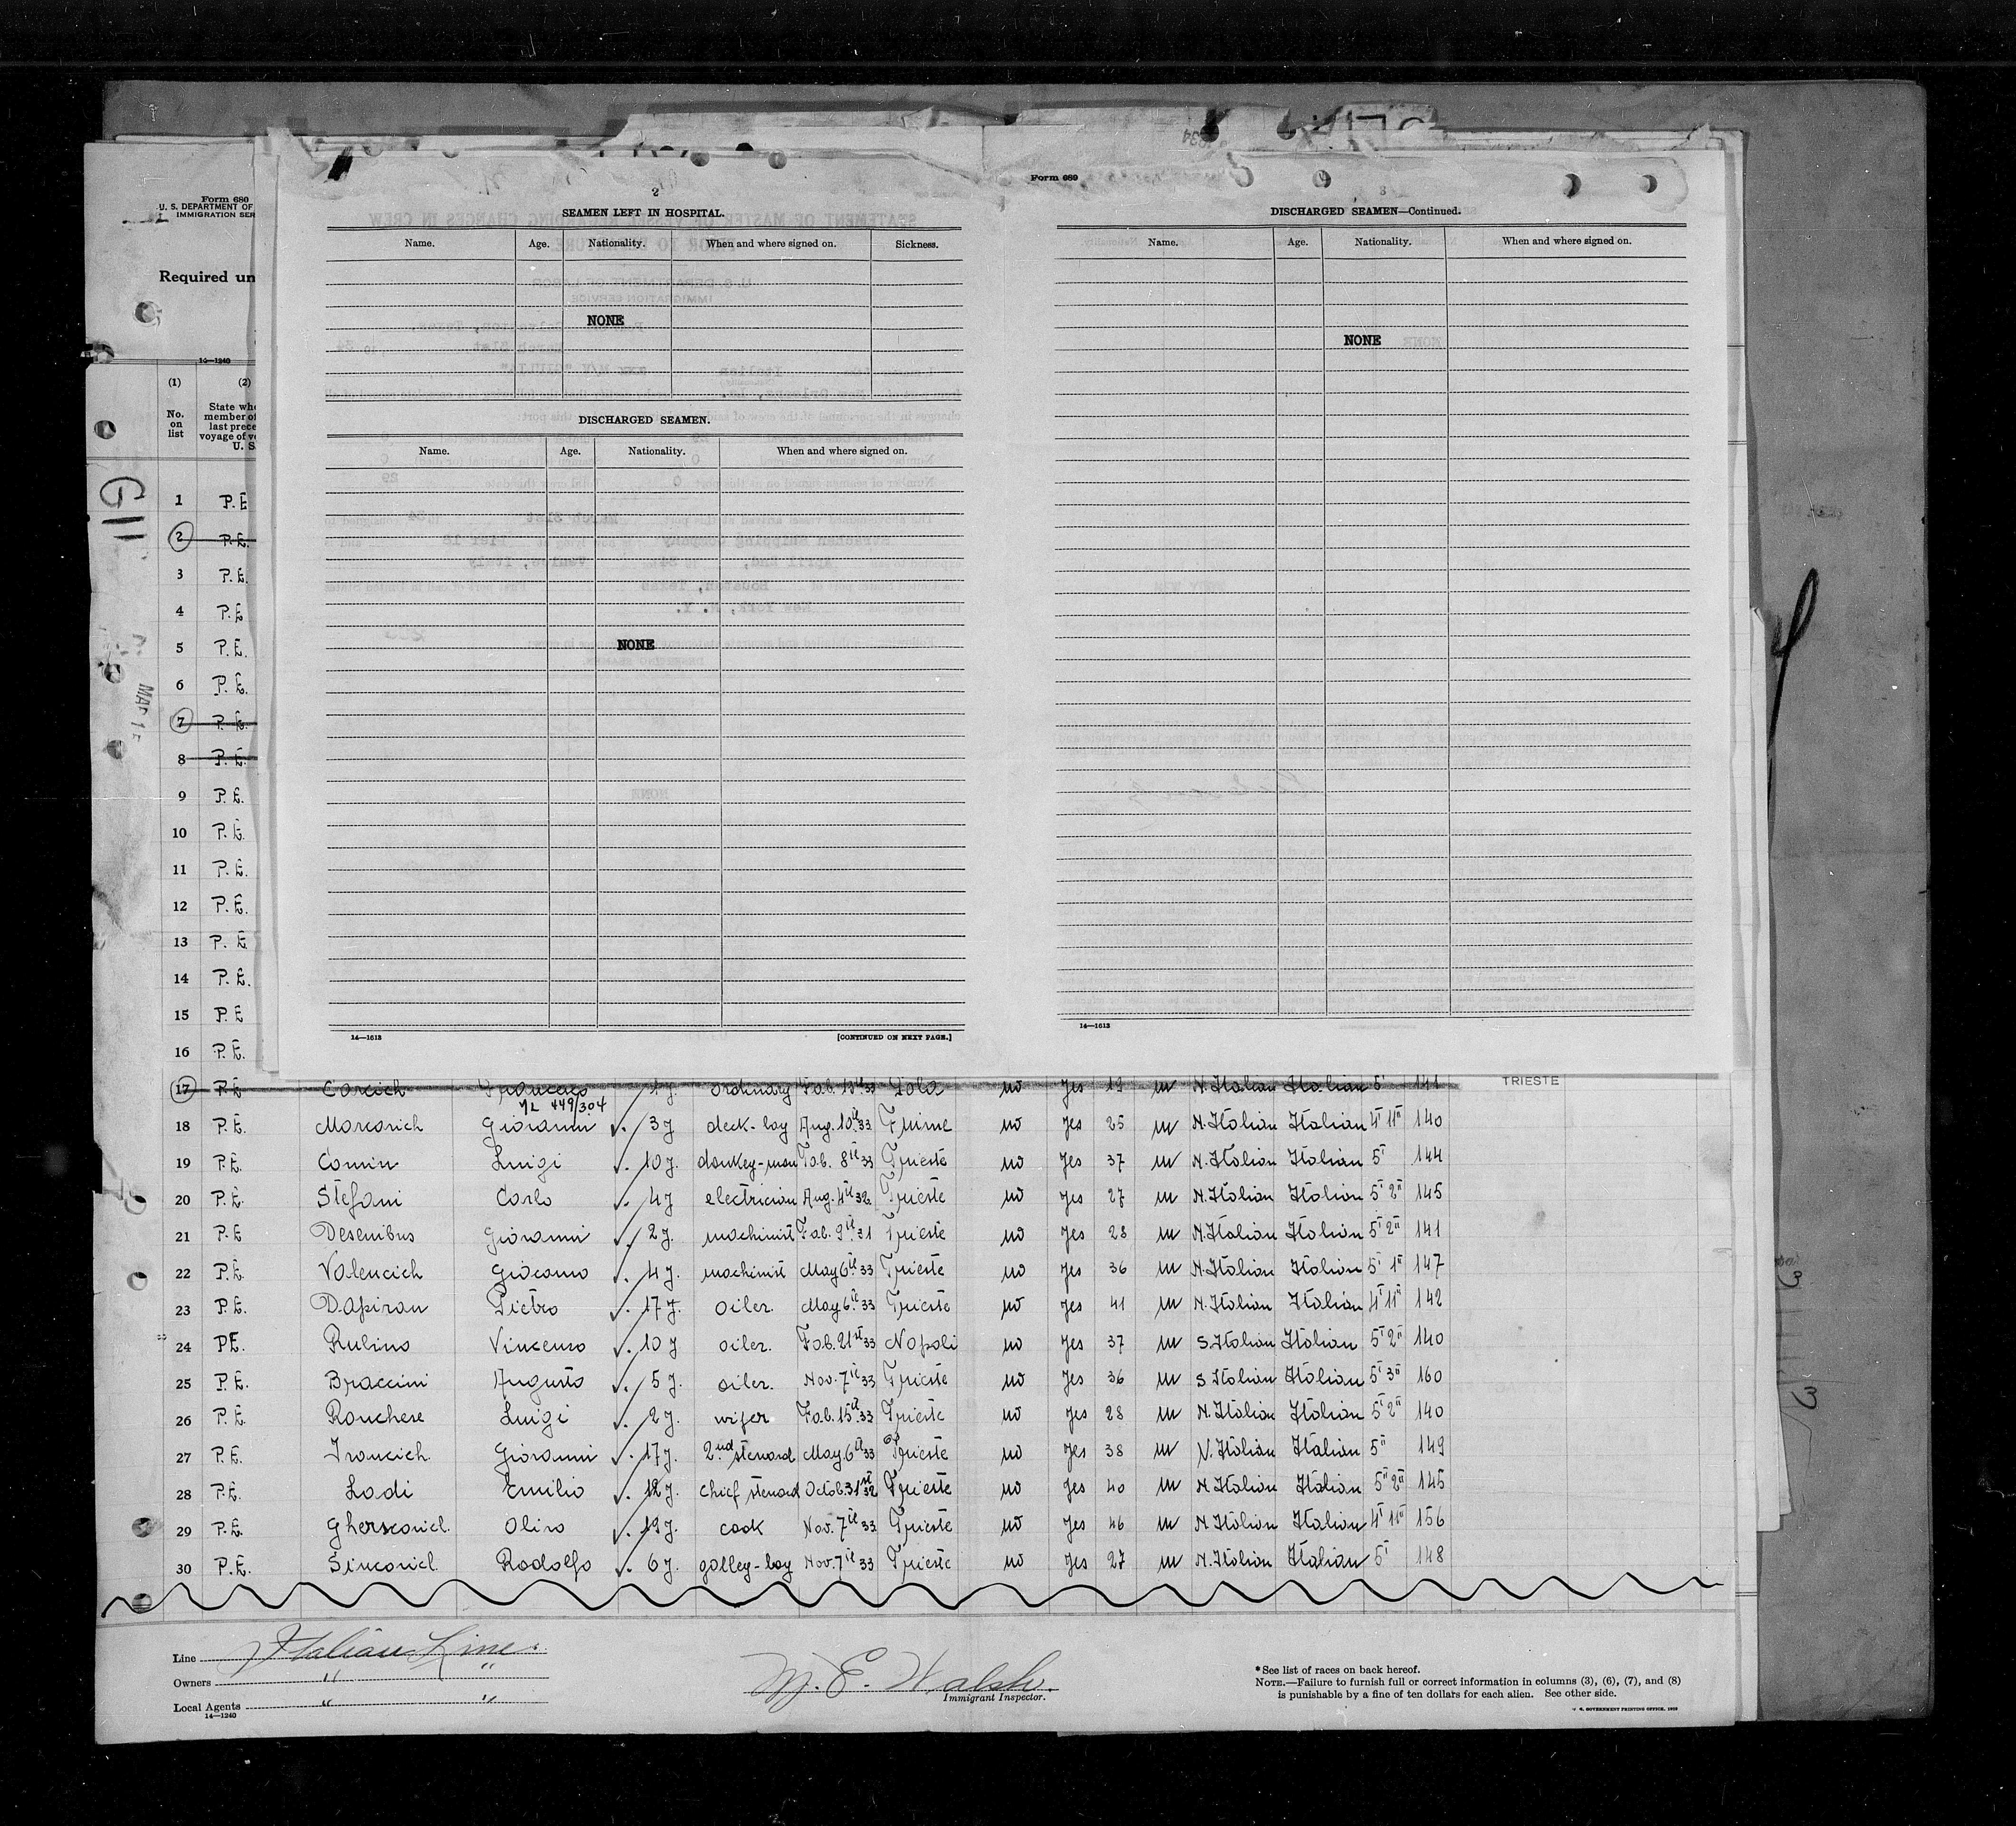 Form 680
U. S. DEPARTMENT OF
IMMIGRATION SER
Required un
14—1240
(1)
(2)
No. on list
State whe
member of
last prece
voyage of ve
U. S.
G11
1 P.E
2 P.E.
3 P.E.
4 P.E
5 P.E.
6 P.E.
7 P.E.
8 P.E.
9 P.E.
10 P.E.
11 P.E.
12 P.E.
13 P.E
14 P.E.
15 P.E
16 P.E.
2
SEAMEN LEFT IN HOSPITAL.
Name. Age. Nationality. When and where signed on. Sickness.
NONE
DISCHARGED SEAMEN.
Name. Age. Nationality. When and where signed on.
NONE
14—1613
[CONTINUED ON NEXT PAGE.]
Form 689
3
DISCHARGED SEAMEN—Continued.
Name. Age. Nationality. When and where signed on.
NONE
14—1613
17 P.E Corcich Francesco 1 y. ordinary Feb. 13 33 Pola no yes 19 m N.Italian Italian 5' 141 TRIESTE
449/304
18 P.E. Marcovich Giovanni 3 y deck-boy Aug. 10th 33 Fiume no yes 25 m N.Italian Italian 4' 11" 140
19 P.E. Comin Luigi 10 y. donkey-man Feb. 8th 33 Trieste no yes 37 m N.Italian Italian 5' 144
20 P.E. Stefani Carlo 4 y electrician Aug. 4th 32 Trieste no yes 27 m N.Italian Italian 5' 2" 145
21 P.E Desenibus Giovanni 2 y. machinist Feb. 9th 31 Trieste no yes 28 m N.Italian Italian 5' 2" 141
22 P.E. Valencich Giacomo 4 y. machinist May 6th 33 Trieste no yes 36 m N.Italian Italian 5' 1" 147
23 P.E. Dapiran Pietro 17 y. oiler. May 6th 33 Trieste no yes 41 m N.Italian Italian 4' 11" 142
24 PE. Rubino Vincenzo 10 y oiler. Feb. 21st 33 Napoli no yes 37 m S.Italian Italian 5' 2" 140
25 P.E. Braccini Augusto 5 y. oiler. Nov. 7th 33 Trieste no yes 36 m S Italian Italian 5' 3" 160
26 P.E Ronchese Luigi 2 y. wiper Feb. 15th 33 Trieste no yes 28 m N.Italian Italian 5' 2" 140
27 P.E. Ivancich Giovanni 17 y. 2nd steward May 6th 33 Trieste no yes 38 m N.Italian Italian 5" 149
28 P.E. Ladi Emilio 12 y. chief steward Octob. 31st 32 Trieste no yes 40 m N Italian Italian 5" 2" 145
29 P.E. Gherscovicl. Olivo 19 y. cook Nov. 7th 33 Trieste no yes 46 m N Italian Italian 4' 11" 156
30 P.E. Sincovicl Rodolfo 6 y. galley-boy Nov. 7th 33 Trieste no yes 27 m N.Italian Italian 5' 148
Line Italian Line.
Owners " "
Local Agents " "
14—1240
M. E. Walsh.
Immigrant Inspector.
*See list of races on back hereof.
NOTE.—Failure to furnish full or correct information in columns (3), (6), (7), and (8)
is punishable by a fine of ten dollars for each alien. See other side.